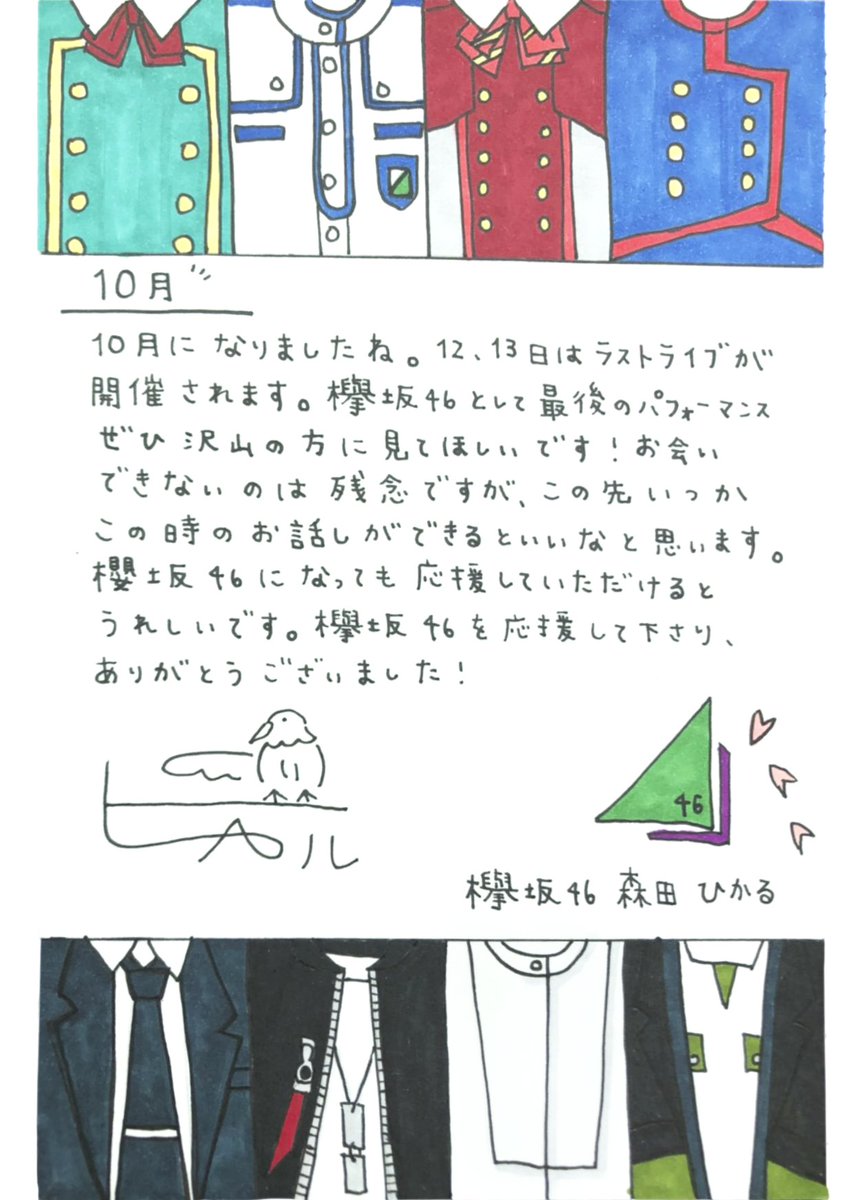 10月
10月になりましたね。12、13日はラストライブが
開催されます。欅坂46として最後のパフォーマンス
ぜひ沢山の方に見てほしいです！お会い
できないのは残念ですが、この先いつか
この時のお話しができるといいなと思います。
櫻坂46になっても応援していただけると
うれしいです。欅坂46を応援して下さり、
ありがとうございました！
46
欅坂46 森田 ひかる